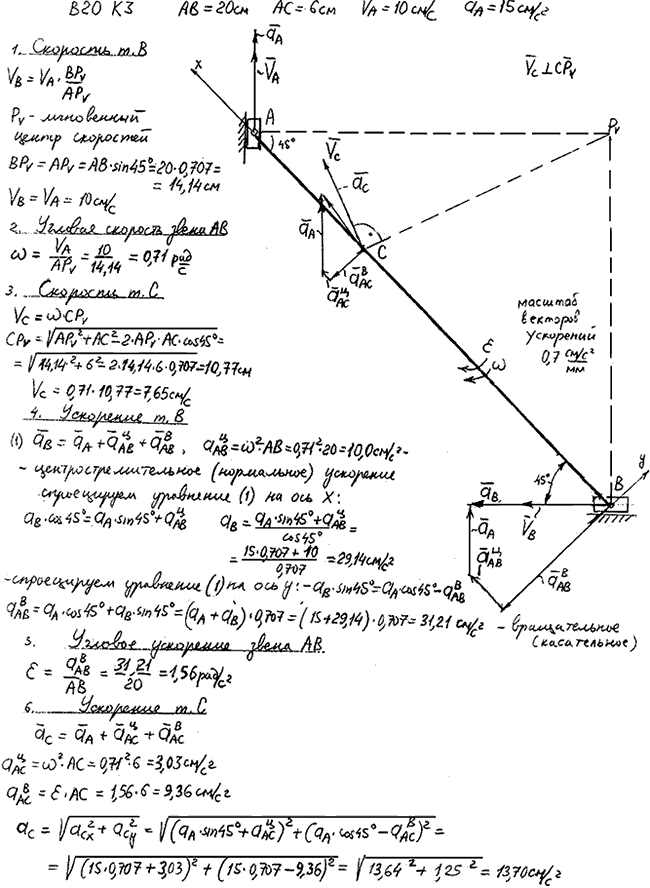 В20 К3 AB = 20см AC = 6см VA = 10 см/с aA = 15 см/с²
1. Скорость т. В
VB = VA · BPv/APv
Pv - мгновенный
центр скоростей
BPv = APv = AB·sin45° = 20·0,707 =
= 14,14 см
VB = VA = 10 см/с
2. Угловая скорость звена АВ
ω = VA/APv = 10/14,14 = 0,71 рад/с
3. Скорость т. С
Vc = ω·CPv
CPv = √(APv² + AC² - 2·APv·AC·cos45°) =
= √(14,14² + 6² - 2·14,14·6·0,707) = 10,77см
Vc = 0,71·10,77 = 7,65 см/с
4. Ускорение т. В
(1) āB = āA + āABᴴ + āABᴮ, aABᴴ = ω²·AB = 0,71²·20 = 10,0 см/с² -
- центростремительное (нормальное) ускорение
спроецируем уравнение (1) на ось X:
aB·cos45° = aA·sin45° + aABᶣ aB = (aA·sin45° + aABᶣ)/cos45° =
= (15·0,707 + 10)/0,707 = 29,14 см/с²
- спроецируем уравнение (1) на ось y: -aB·sin45° = aA·cos45° - aABᴮ
aABᴮ = aA·cos45° + aB·sin45° = (aA + aB)·0,707 = (15 + 29,14)·0,707 = 31,21 см/с² - вращательное
(касательное)
5. Угловое ускорение звена АВ
ε = aABᴮ/AB = 31,21/20 = 1,56 рад/с²
6. Ускорение т. С
āc = āA + āACᶣ + āACᴮ
aACᶣ = ω²·AC = 0,71²·6 = 3,03 см/с²
aACᴮ = ε·AC = 1,56·6 = 9,36 см/с²
ac = √(acx² + acy²) = √((aA·sin45° + aACᶣ)² + (aA·cos45° - aACᴮ)²) =
= √((15·0,707 + 3,03)² + (15·0,707 - 9,36)²) = √(13,64² + 1,25²) = 13,70 см/с²
āA
V̄A
V̄c ⊥ CPv
x
A
Pv
45°
V̄c
āc
āA
C
āACᴮ
āACᶣ
масштаб
векторов
ускорений
0,7 см/с²/мм
ε
ω
y
45°
B
āB
V̄B
āA
āABᶣ
āABᴮ